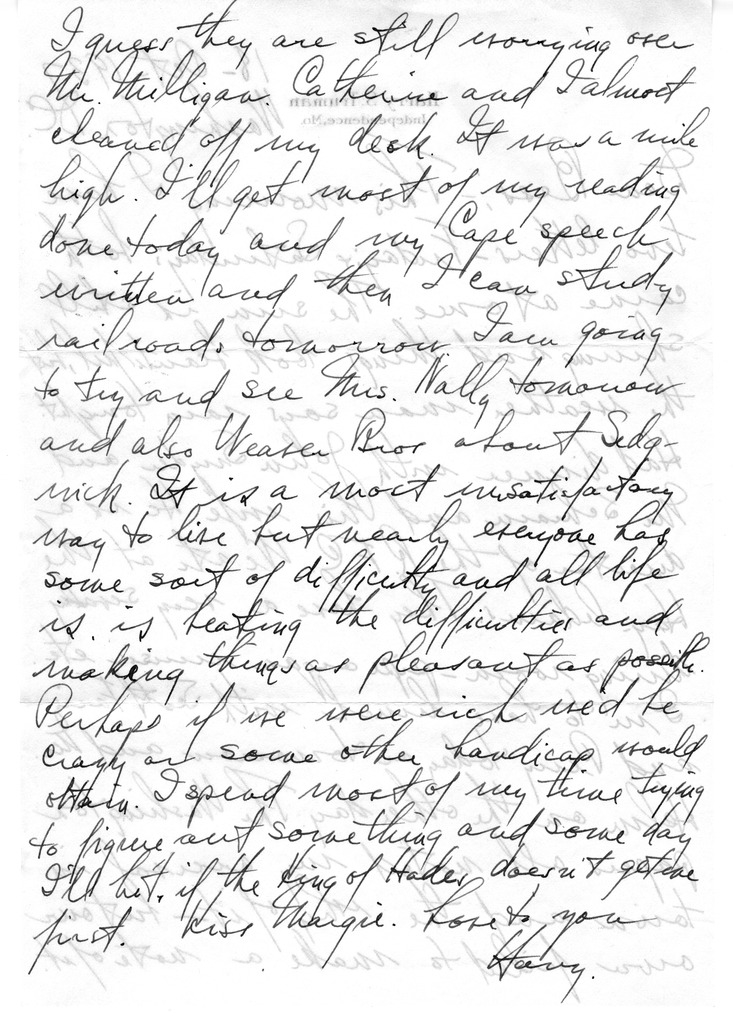 I guess they are still worrying over
Mr. Milligan. Catherine and I almost
cleaned off my desk. It was a mile
high. I'll get most of my reading
done today and my Cape speech
written and then I can study
railroads tomorrow. I am going
to try and see Mrs. Nally tomorrow
and also Weaver Bros about Sedg-
wick. It is a most unsatisfactory
way to live but nearly everyone has
some sort of difficulty and all life
is is beating the difficulties and
making things as pleasant as possible.
Perhaps if we were rich we'd be
crazy or some other handicap would
obtain. I spend most of my time trying
to figure out something and some day
I'll hit, if the King of Hades doesn't get me
first. Kiss Margie. Love to you
Harry.
Independence, Mo.